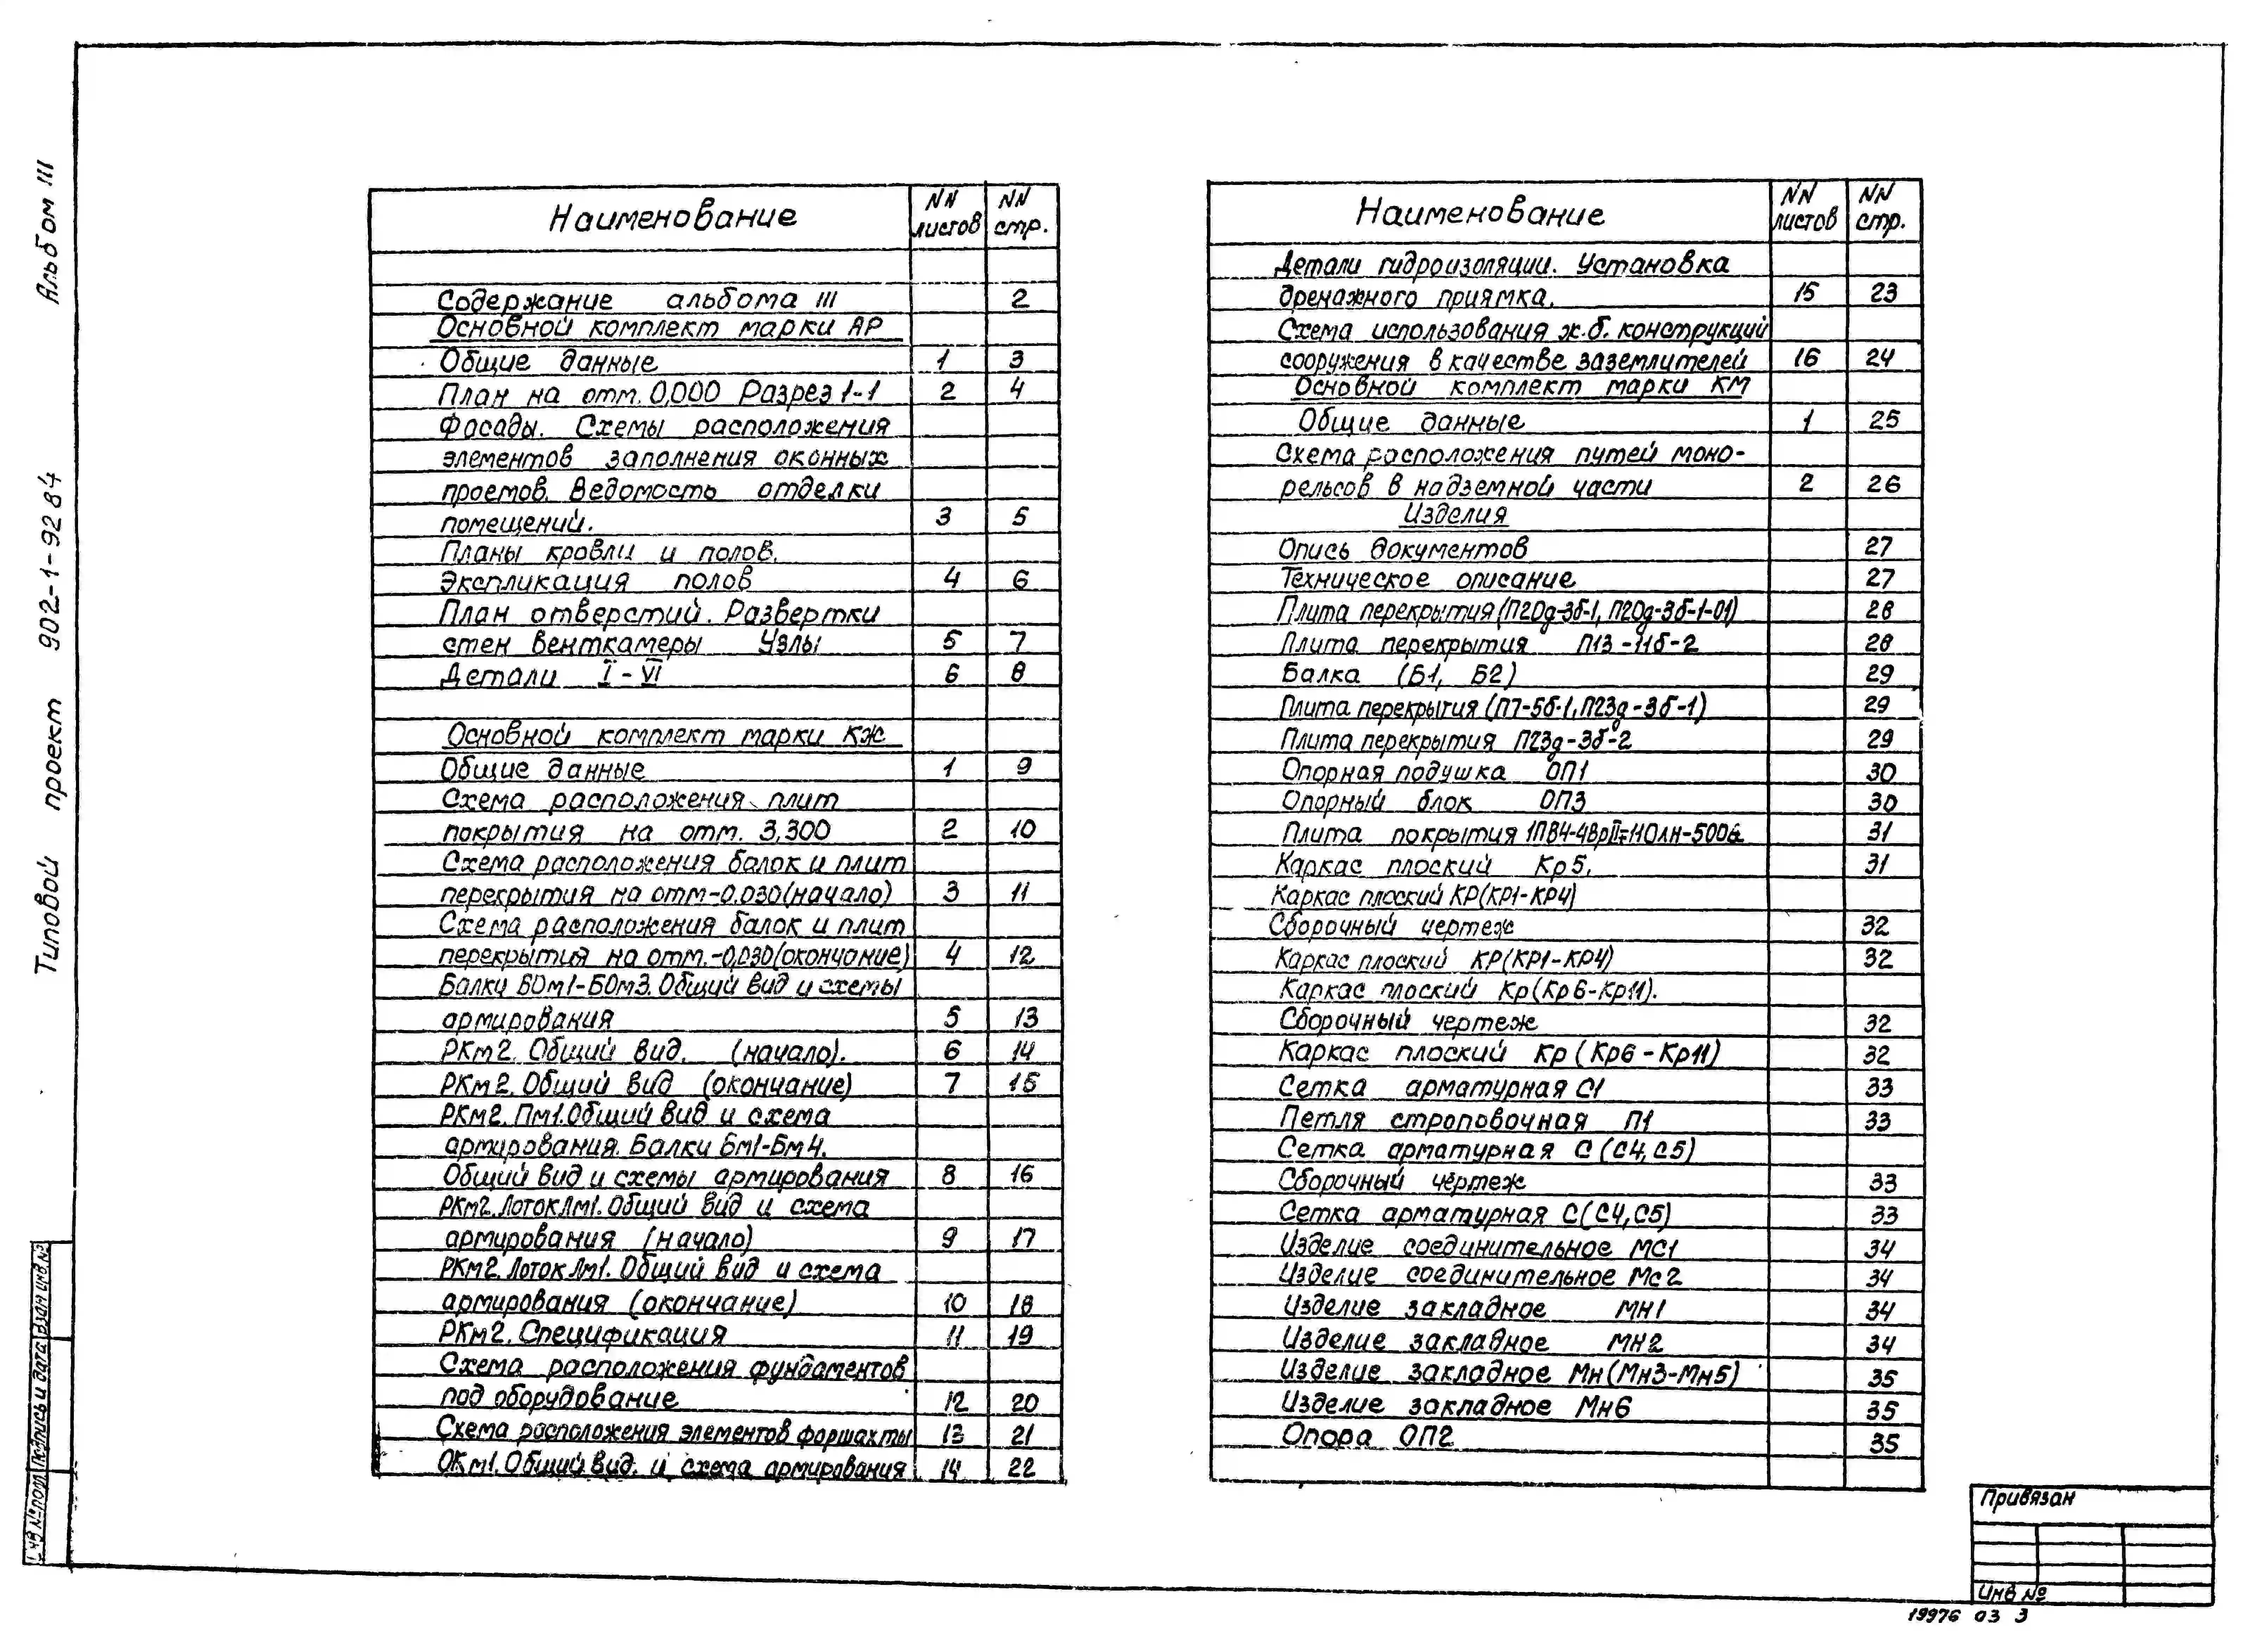 Альбом III
Типовой проект 902-1-92 84
Наименование NN листов NN стр.
Содержание альбома III 2
Основной комплект марки АР
Общие данные 1 3
План на отм. 0,000 Разрез 1-1 2 4
Фасады. Схемы расположения
элементов заполнения оконных
проемов. Ведомость отделки
помещений. 3 5
Планы кровли и полов.
Экспликация полов 4 6
План отверстий. Развертки
стен венткамеры Узлы 5 7
Детали I - VI 6 8
Основной комплект марки КЖ
Общие данные 1 9
Схема расположения плит
покрытия на отм. 3,300 2 10
Схема расположения балок и плит
перекрытия на отм-0.030(начало) 3 11
Схема расположения балок и плит
перекрытия на отм.-0,030(окончание) 4 12
Балки БОм1-БОм3. Общий вид и схемы
армирования 5 13
РКм2. Общий вид. (начало). 6 14
РКм2. Общий вид (окончание) 7 15
РКм2. Пм1. Общий вид и схема
армирования. Балки Бм1-Бм4.
Общий вид и схемы армирования 8 16
РКм2. Лоток Лм1. Общий вид и схема
армирования (начало) 9 17
РКм2. Лоток Лм1. Общий вид и схема
армирования (окончание) 10 18
РКм2. Спецификация 11 19
Схема расположения фундаментов
под оборудование 12 20
Схема расположения элементов форшахты 13 21
ОКм1. Общий вид. и схема армирования 14 22
Наименование NN листов NN стр.
Детали гидроизоляции. Установка
дренажного приямка. 15 23
Схема использования ж.б. конструкций
сооружения в качестве заземлителей 16 24
Основной комплект марки КМ
Общие данные 1 25
Схема расположения путей моно-
рельсов в надземной части 2 26
Изделия
Опись документов 27
Техническое описание 27
Плита перекрытия (П20д-3б-1, П20д-3б-1-01) 28
Плита перекрытия П13-11б-2 28
Балка (Б1, Б2) 29
Плита перекрытия (П7-5б-1, П23д-3б-1) 29
Плита перекрытия П23д-3б-2 29
Опорная подушка ОП1 30
Опорный блок ОП3 30
Плита покрытия 1ПВ4-4ВрII-10ЛН-500а 31
Каркас плоский Кр5. 31
Каркас плоский КР(КР1-КР4)
Сборочный чертеж 32
Каркас плоский КР(КР1-КР4) 32
Каркас плоский Кр(Кр6-Кр11).
Сборочный чертеж 32
Каркас плоский Кр (Кр6-Кр11) 32
Сетка арматурная С1 33
Петля строповочная П1 33
Сетка арматурная С (С4, С5)
Сборочный чертеж 33
Сетка арматурная С(С4, С5) 33
Изделие соединительное МС1 34
Изделие соединительное Мс2 34
Изделие закладное МН1 34
Изделие закладное МН2 34
Изделие закладное Мн(Мн3-Мн5) 35
Изделие закладное Мн6 35
Опора ОП2 35
Инв № подл. Подпись и дата Взам инв. №
Привязан
Инв №
19976 03 3